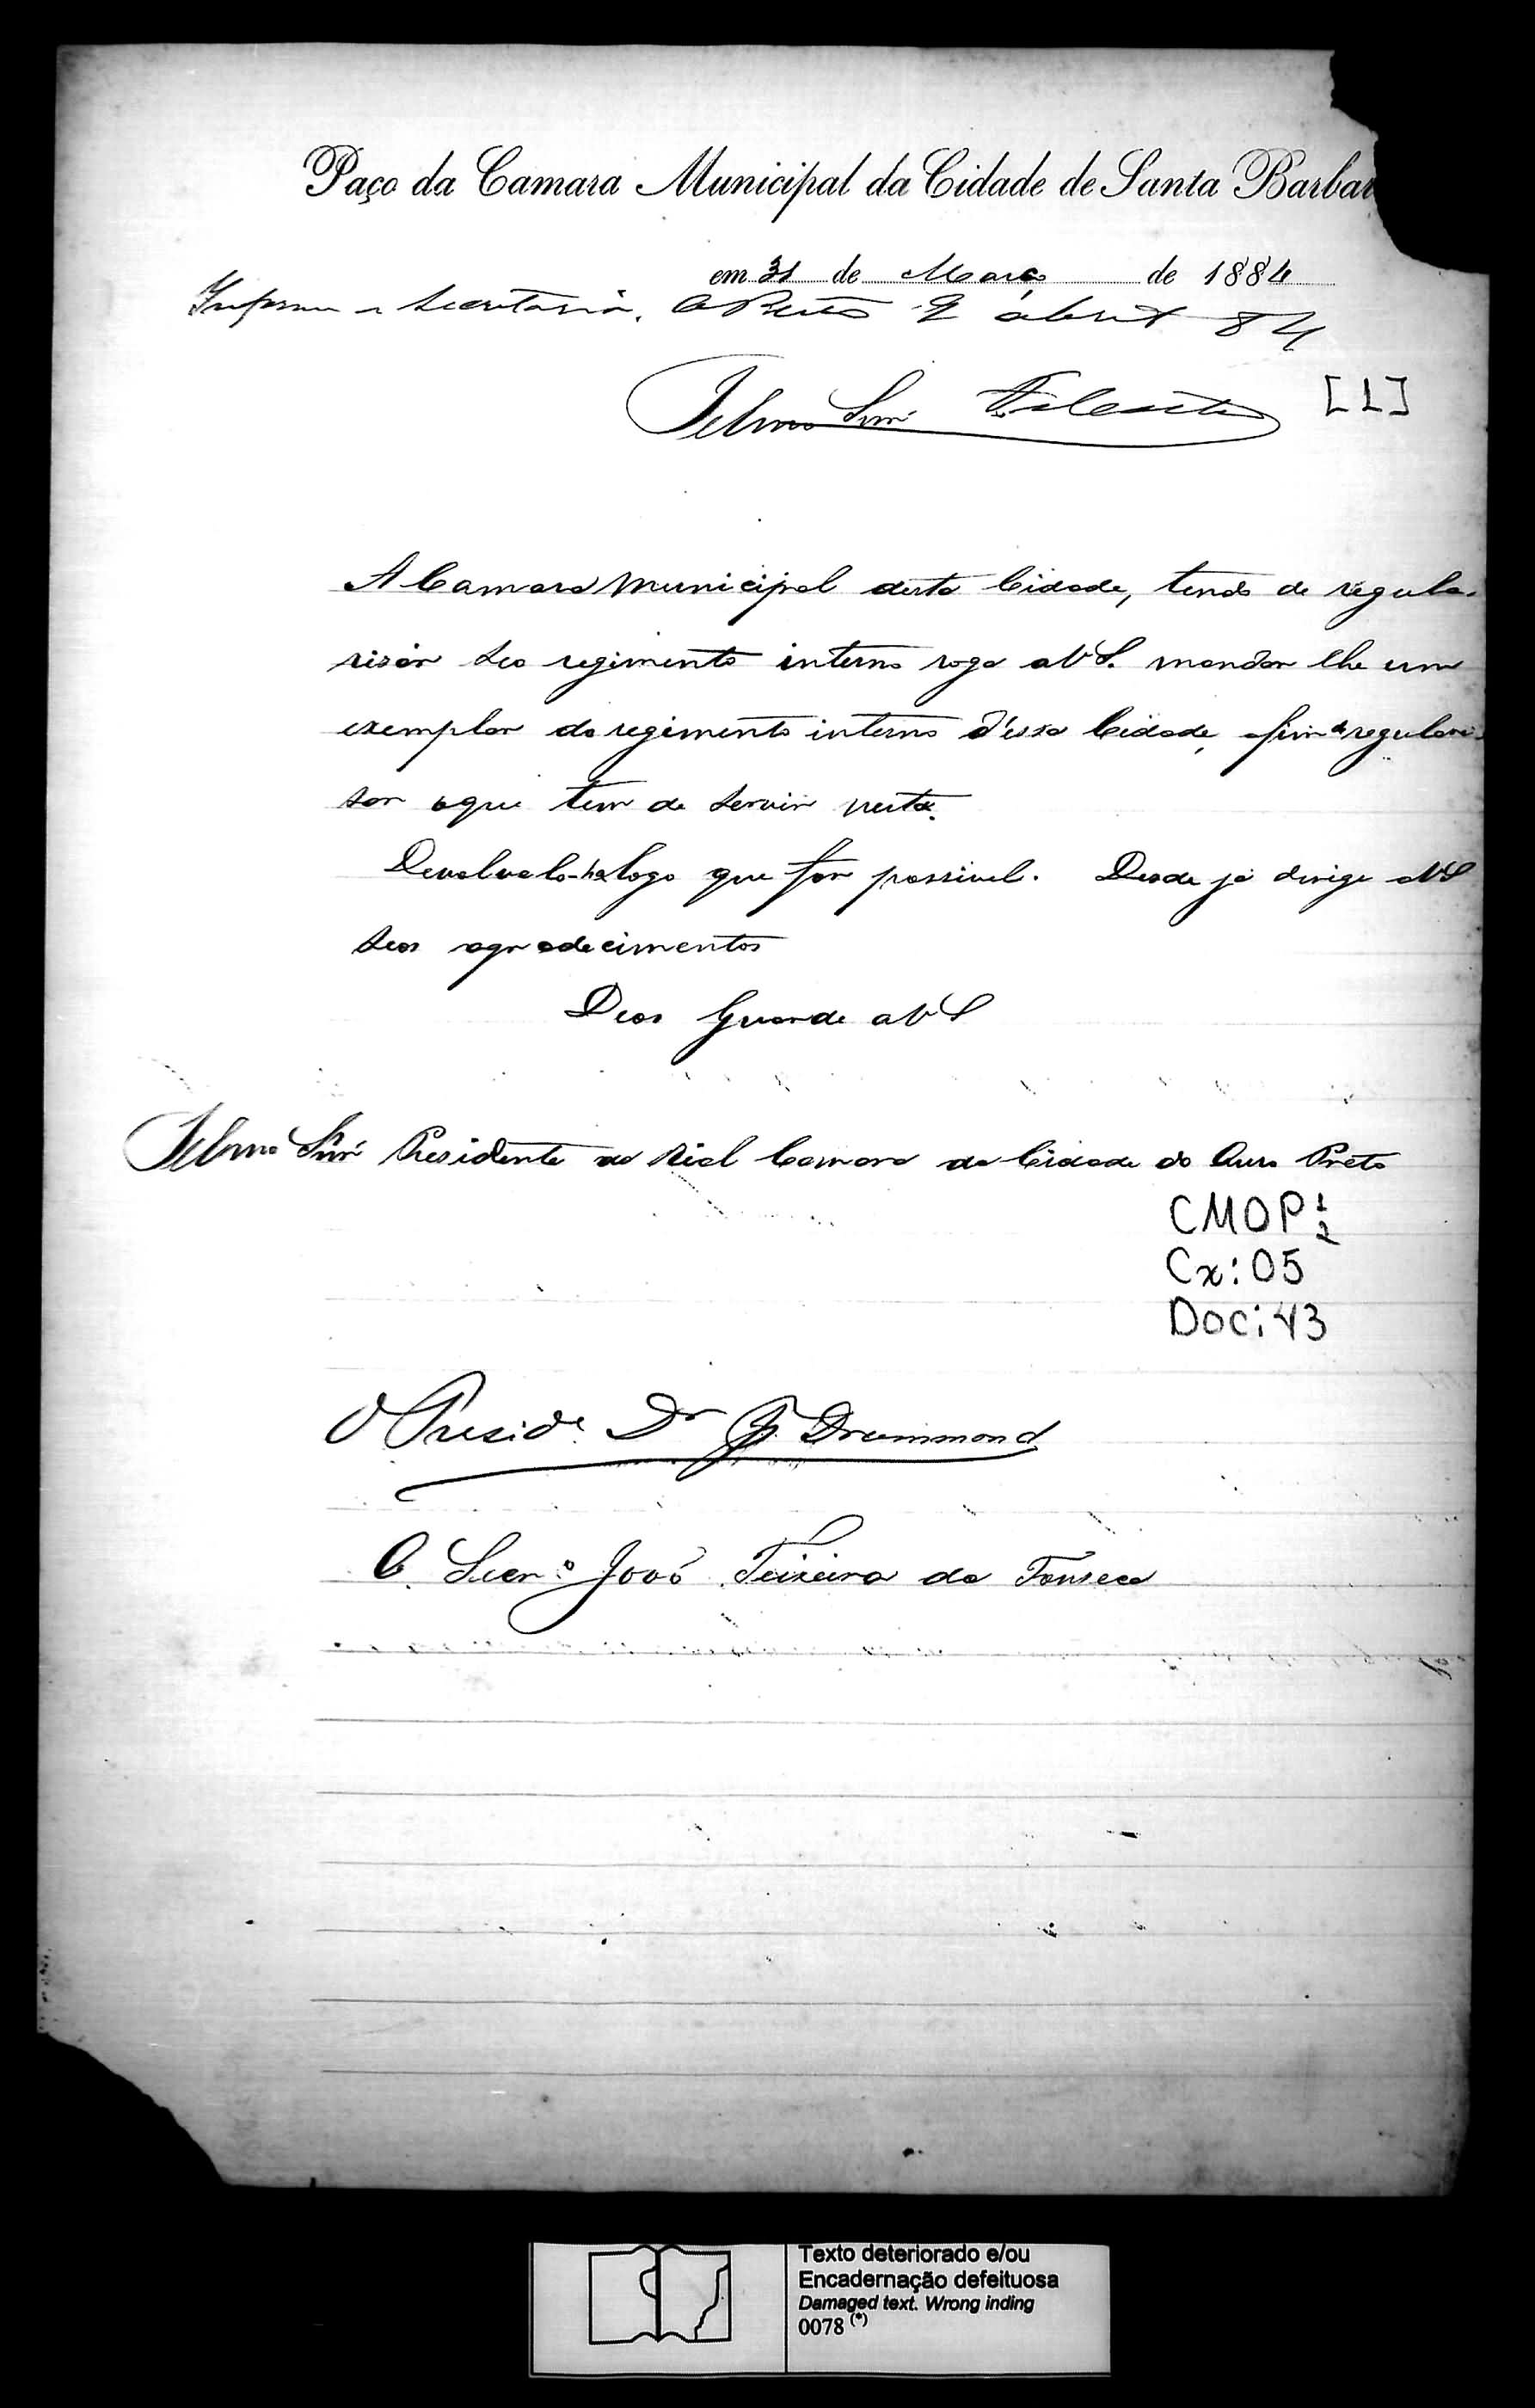 Paço da Camara Municipal da Cidade de Santa Barbar
em 31 de Março de 1884
Informe a Secretaria. O Preto 2 abril 84
Illmo Snr
[1]
A Camara Municipal desta Cidade, tendo de regula-
risar seo regimento interno roga a V S. mandar lhe um
exemplar do regimento interno d'essa Cidade, afim de regulari
sar o que tem de servir nesta.
Devolvelo-ha logo que for possivel. Desde já dirige a V S
seos agradecimentos
Deos Guarde a V S
Illmo Snr Presidente da Camara da Cidade do Ouro Preto
CMOP 1/2
Cx: 05
Doc: 43
O Presid.e Dr J. Drummond
O Secr.o João Teixeira da Fonseca
Texto deteriorado e/ou
Encadernação defeituosa
Damaged text. Wrong inding
0078 (*)